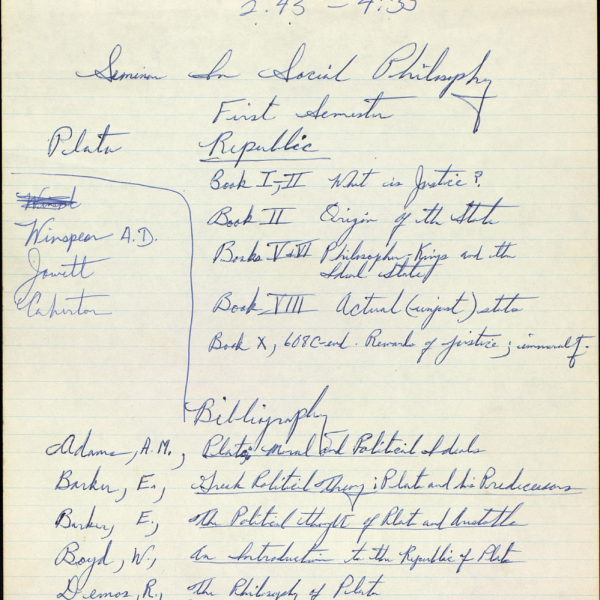 2:45 – 4:35
Seminar In Social Philosophy
First Semester
Plato
Republic
Winspear A.D.
Jowett
Book I-II What is Justice?
Book II Origin of the State
Books V & VI Philosopher-Kings and the
Ideal State
Book VIII Actual (unjust) state
Book X, 608C-end. Rewards of justice;
Bibliography
Adams, A.M., Plato; Moral and Political Ideals
Barker, E., Greek Political Theory; Plato and his Predecessors
Barker, E., The Political thought of Plato and Aristotle
Boyd, W., An Introduction to the Republic of Plato
Demos, R., The Philosophy of Plato